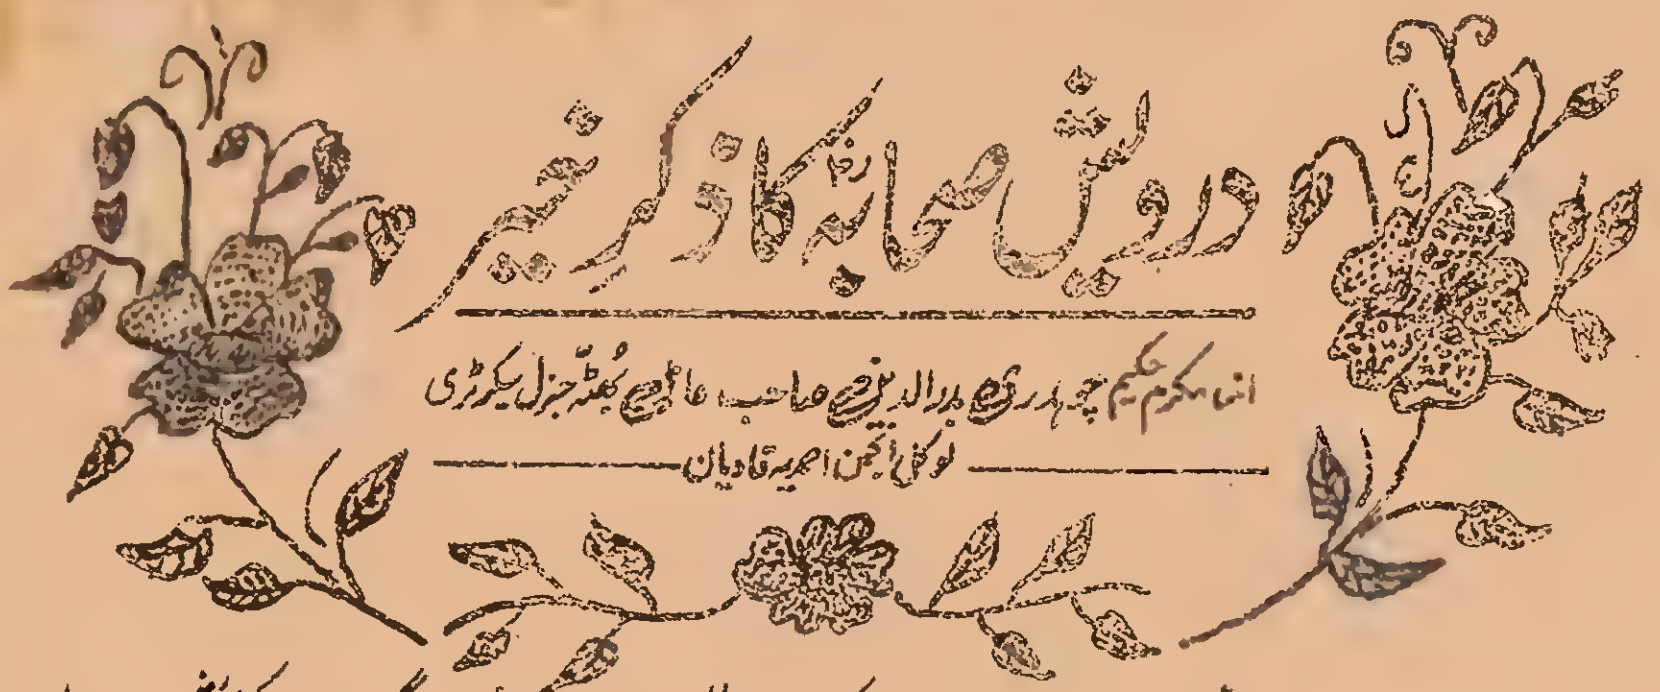 درویش صحابہؓ کا ذکرِ خیر
از مکرم حکیم چوہدری بدرالدین صاحب عامل بھٹہ جنرل سیکرٹری
لوکل انجمن احمدیہ قادیان